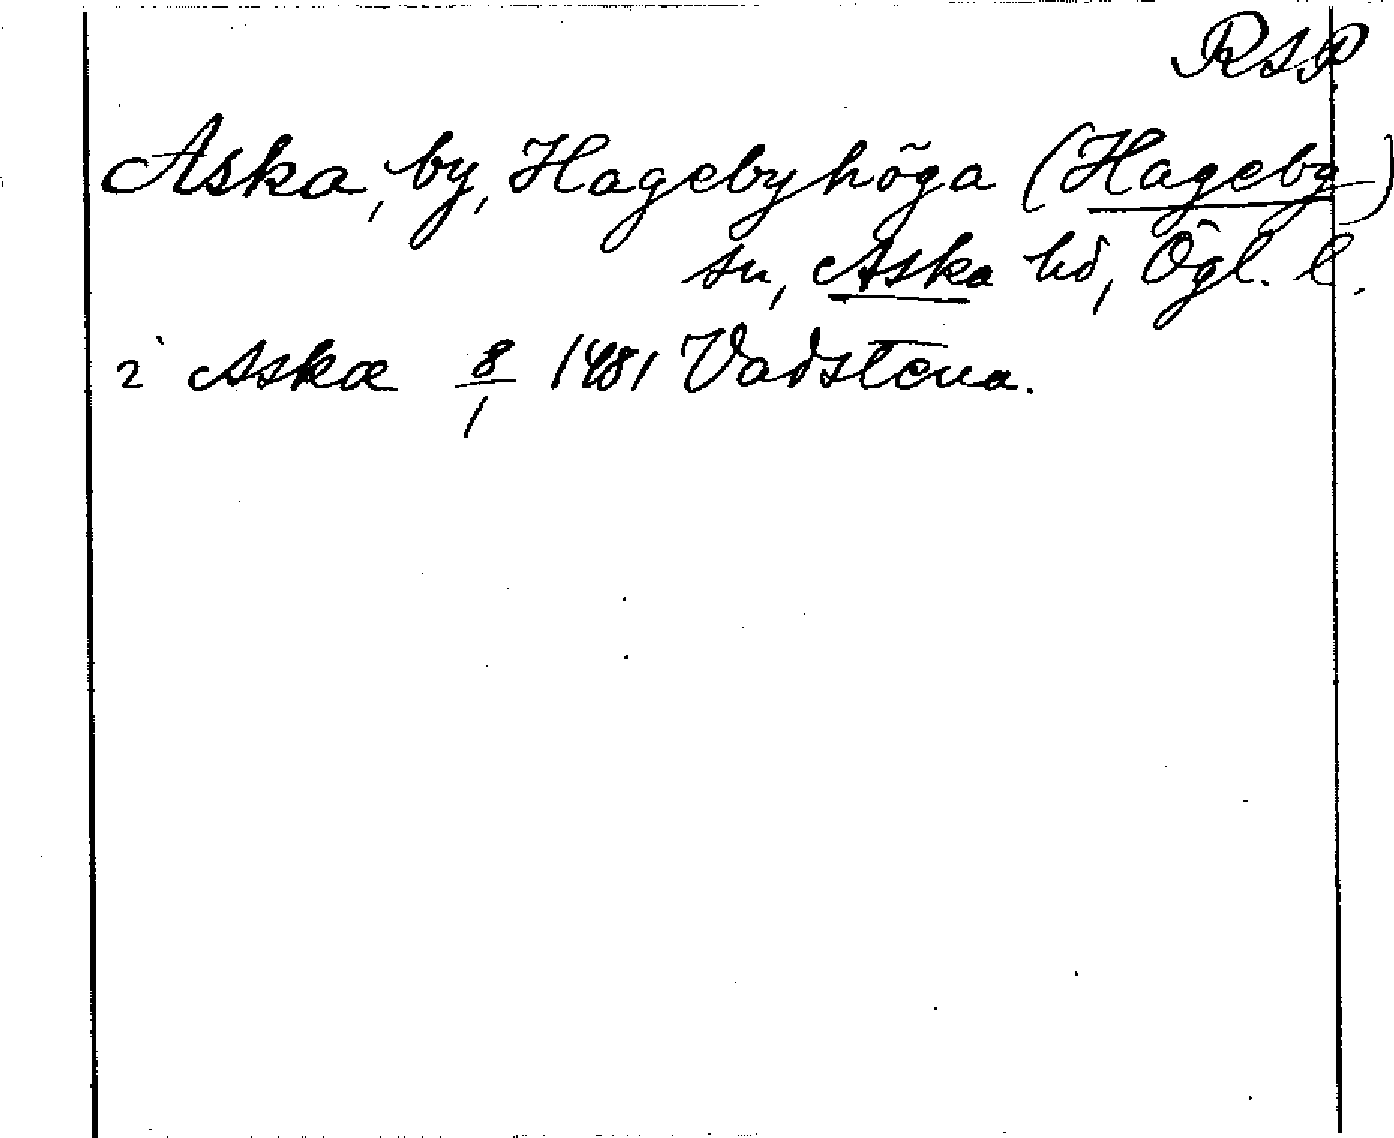 RAP.
Aska, by, Hagebyhöga (Hageby)
sn, Aska hd, Ögl. l.
i Askæ 8/1 1481 Vadstena.